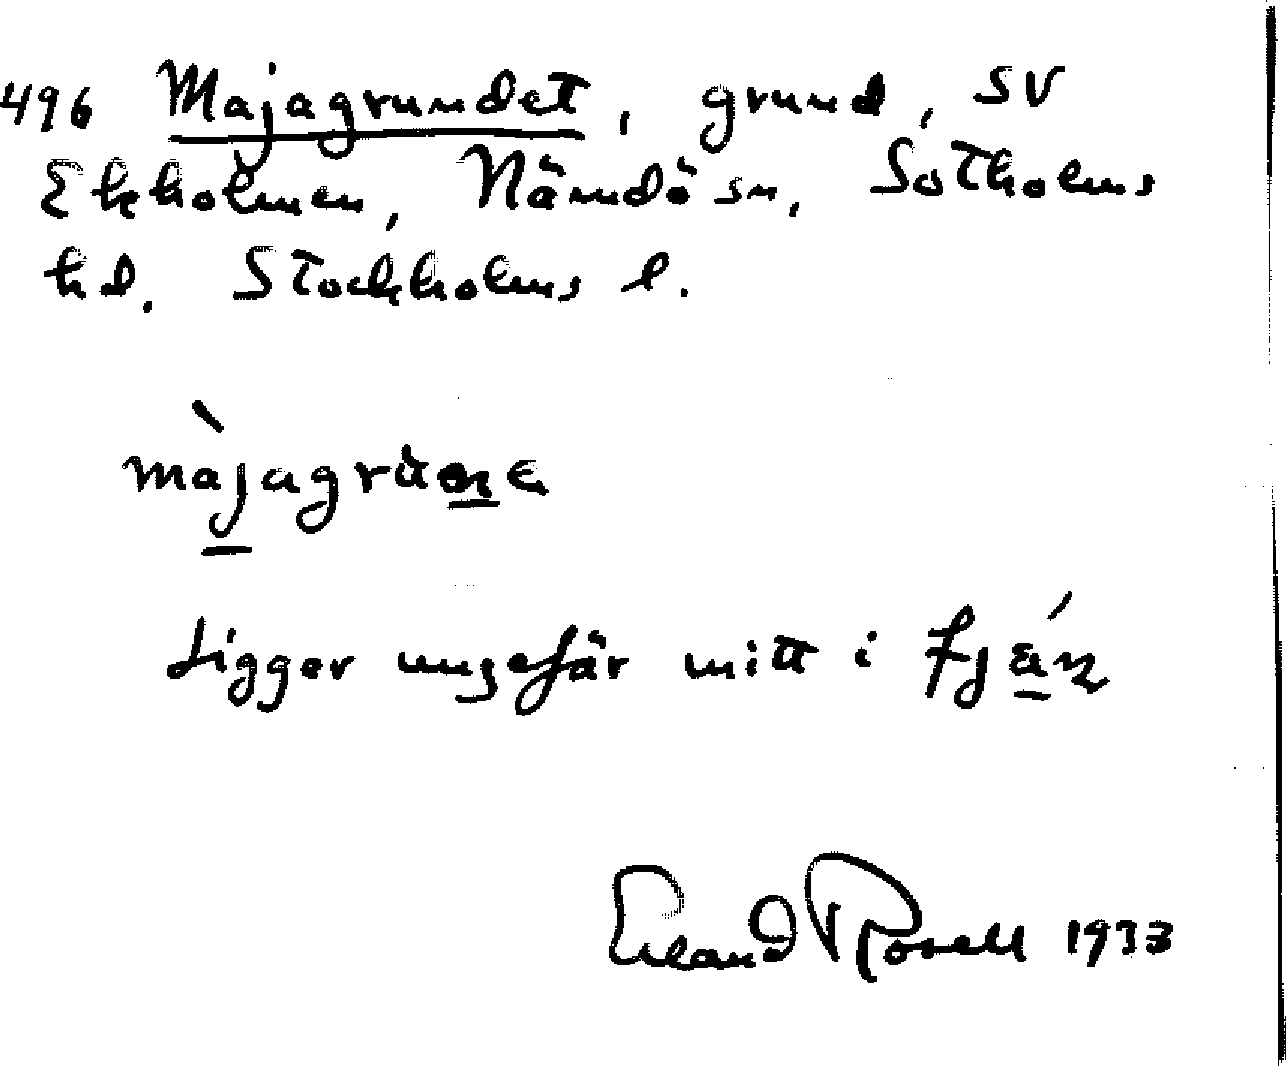 496 Majagrundet, grund, SV
Ekholmen, Nämdö sn, Sotholms
hd. Stockholms l.
Ligger ungefär mitt i
Erland Rosell 1933